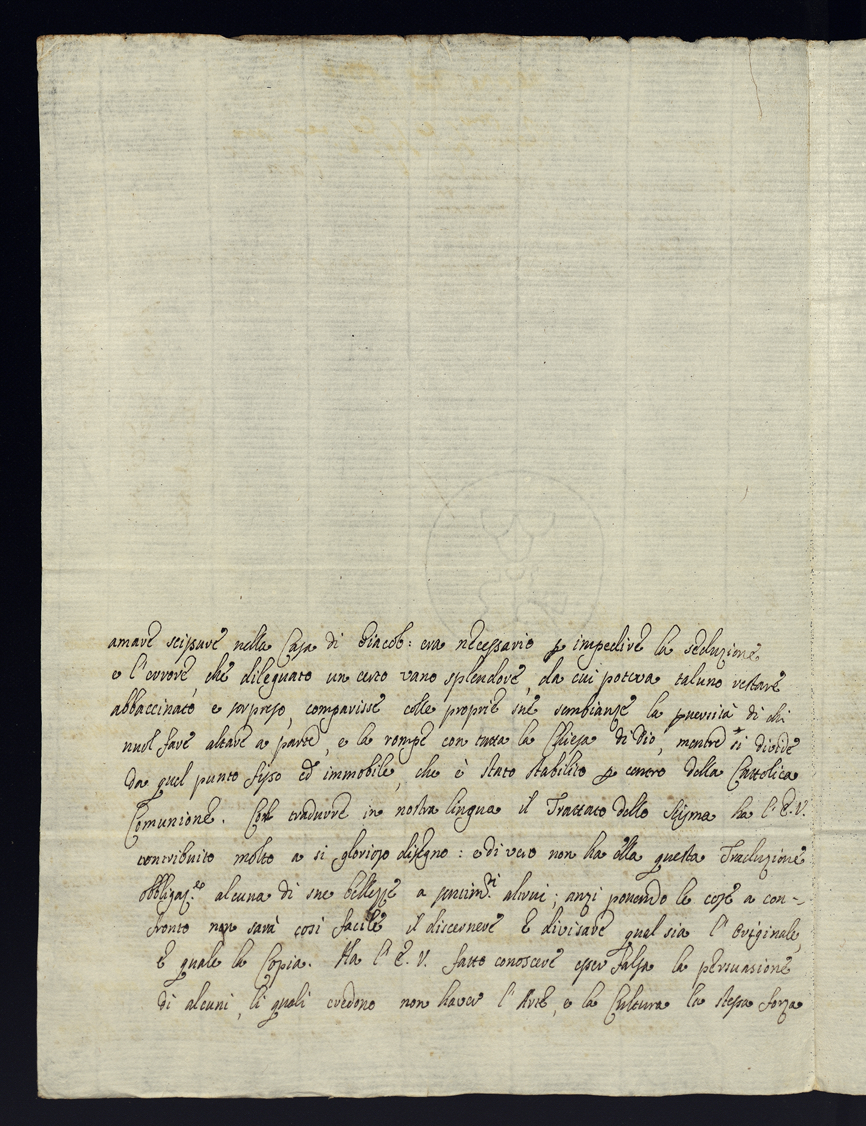 amare scissure nella Casa di Giacob: era necessario p impedire la seduzione,
e l'errore, che dileguato un certo vano splendore, da cui poteva taluno restare
abbaccinato, e sorpreso, comparisse colle proprie sue sembianze la pversità di chi
vuol fare altare a parte, e la rompe con tutta la Chiesa di Dio, mentre si divide
da quel punto fisso ed immobile, che è stato stabilito p centro della Cattolica
Comunione. Col tradurre in nostra lingua il Trattato dello Scisma ha l'E.V.
contribuito molto a si glorioso disegno: e di vero non ha ella questa Traduzione
obbligaz.ne alcuna di sue bellezze a sentim.ti altrui; anzi ponendo le cose a con-
fronto non sarà così facile il discernere e divisare qual sia l'Originale,
e quale la Copia. Ha l'E.V. fatto conoscere esser falsa la persuasione
di alcuni, li quali credono non haver l'Arte, e la Cultura la stessa forza